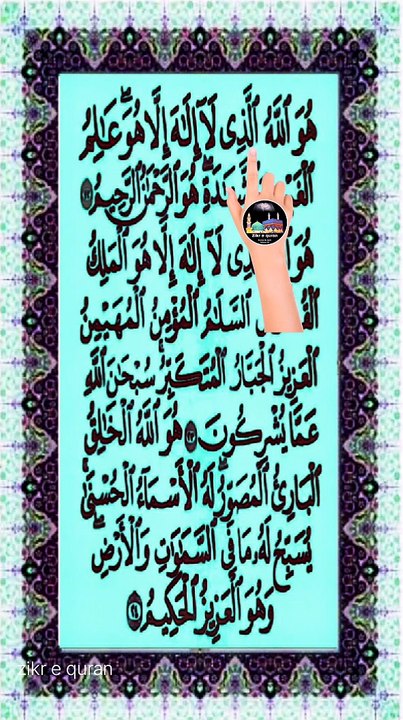 هُوَ ٱللَّهُ ٱلَّذِى لَآ إِلَٰهَ إِلَّا هُوَ ۖ عَٰلِمُ
هُوَ ٱلرَّحْمَٰنُ ٱلرَّحِيمُ ﴿٢٢﴾
لَآ إِلَٰهَ إِلَّا هُوَ ٱلْمَلِكُ
ٱلسَّلَٰمُ ٱلْمُؤْمِنُ ٱلْمُهَيْمِنُ
ٱلْعَزِيزُ ٱلْجَبَّارُ ٱلْمُتَكَبِّرُ ۚ سُبْحَٰنَ ٱللَّهِ
عَمَّا يُشْرِكُونَ ﴿٢٣﴾ هُوَ ٱللَّهُ ٱلْخَٰلِقُ
ٱلْبَارِئُ ٱلْمُصَوِّرُ ۖ لَهُ ٱلْأَسْمَآءُ ٱلْحُسْنَىٰ ۚ
يُسَبِّحُ لَهُۥ مَا فِى ٱلسَّمَٰوَٰتِ وَٱلْأَرْضِ ۖ
وَهُوَ ٱلْعَزِيزُ ٱلْحَكِيمُ ﴿٢٤﴾
zikr e quran
Zikr e quran